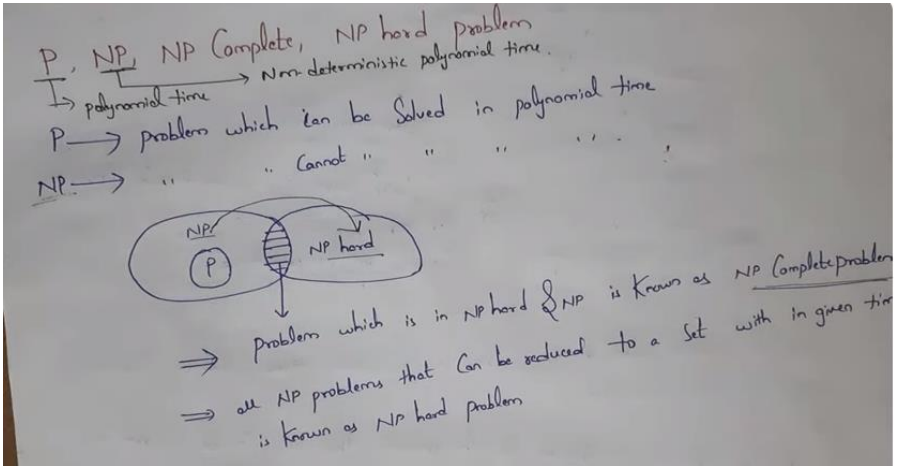 P, NP, NP Complete, NP hard problem
polynomial time
Non-deterministic polynomial time.
P → problem which can be Solved in polynomial time
NP. → " " Cannot " " " " .
NP
P
NP hard
⇒ problem which is in NP hard & NP is Known as NP Complete problem
⇒ all NP problems that Can be reduced to a Set with in given tim
is Known as NP hard problem